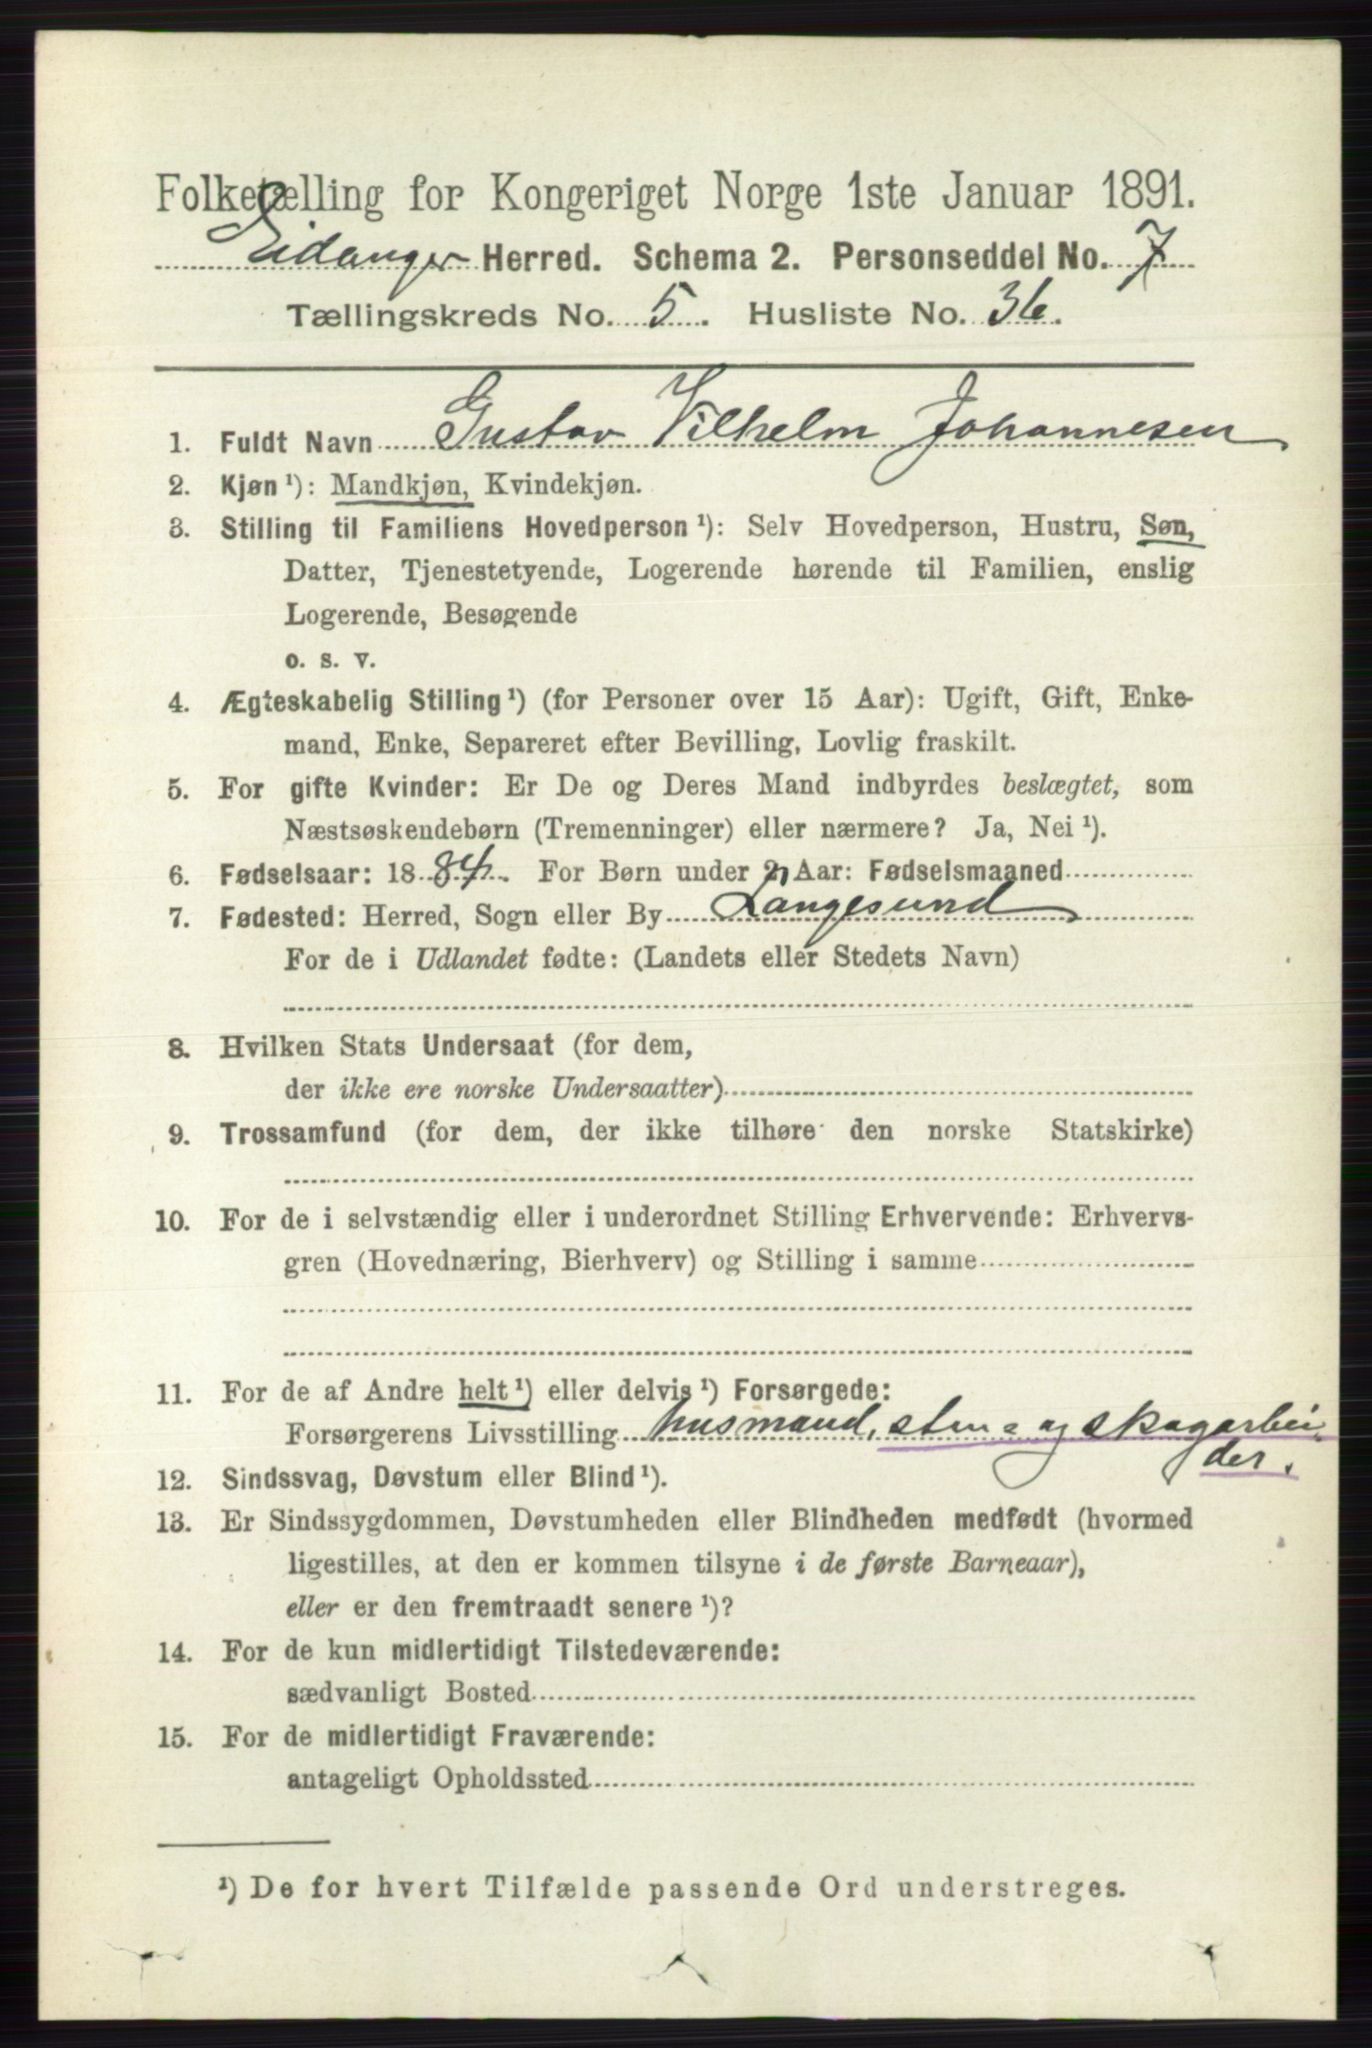 Folketælling for Kongeriget Norge 1ste Januar 1891.
Eidanger Herred. Schema 2. Personseddel No. 7
Tællingskreds No. 5. Husliste No. 36.
1. Fuldt Navn Gustav Vilhelm Johannesen
2. Kjøn¹): Mandkjøn, Kvindekjøn.
3. Stilling til Familiens Hovedperson¹): Selv Hovedperson, Hustru, Søn,
Datter, Tjenestetyende, Logerende hørende til Familien, enslig
Logerende, Besøgende
o. s. v.
4. Ægteskabelig Stilling¹) (for Personer over 15 Aar): Ugift, Gift, Enke-
mand, Enke, Separeret efter Bevilling, Lovlig fraskilt.
5. For gifte Kvinder: Er De og Deres Mand indbyrdes beslægtet, som
Næstsøskendebørn (Tremenninger) eller nærmere? Ja, Nei¹).
6. Fødselsaar: 1884. For Børn under 2 Aar: Fødselsmaaned
7. Fødested: Herred, Sogn eller By Langesund
For de i Udlandet fødte: (Landets eller Stedets Navn)
8. Hvilken Stats Undersaat (for dem,
der ikke ere norske Undersaatter)
9. Trossamfund (for dem, der ikke tilhøre den norske Statskirke)
10. For de i selvstændig eller i underordnet Stilling Erhvervende: Erhvervs-
gren (Hovednæring, Bierhverv) og Stilling i samme
11. For de af Andre helt¹) eller delvis¹) Forsørgede:
Forsørgerens Livsstilling husmand, sten- og skogarbei-
der.
12. Sindssvag, Døvstum eller Blind¹).
13. Er Sindssygdommen, Døvstumheden eller Blindheden medfødt (hvormed
ligestilles, at den er kommen tilsyne i de første Barneaar),
eller er den fremtraadt senere¹)?
14. For de kun midlertidigt Tilstedeværende:
sædvanligt Bosted
15. For de midlertidigt Fraværende:
antageligt Opholdssted
¹) De for hvert Tilfælde passende Ord understreges.